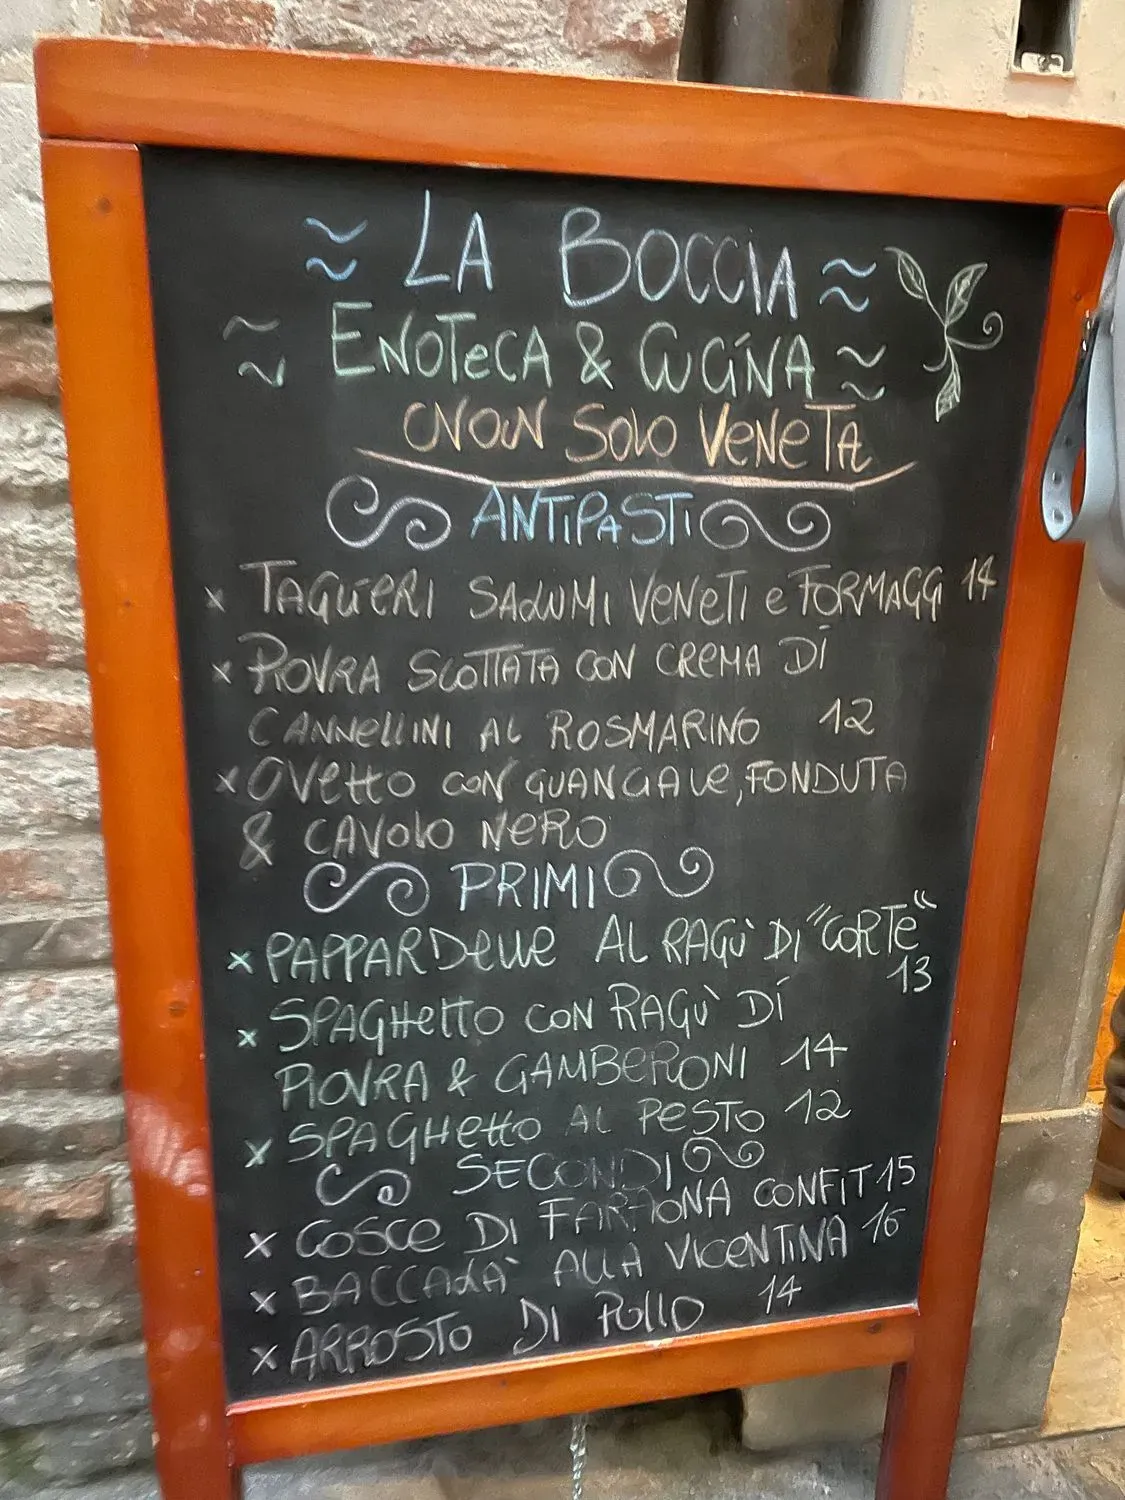 LA BOCCIA
ENOTECA & CUCINA
NON SOLO VENETA
ANTIPASTI
x TAGLIERI SALUMI VENETI e FORMAGGI 14
x PIOVRA SCOTTATA CON CREMA DI
CANNELLINI AL ROSMARINO 12
x OVETTO CON GUANCIALE, FONDUTA
& CAVOLO NERO
PRIMI
x PAPPARDELLE AL RAGÙ DI "CORTE"
13
x SPAGHETTO CON RAGÙ DI
PIOVRA & GAMBERONI 14
x SPAGHETTO AL PESTO 12
SECONDI
x COSCE DI FARAONA CONFIT 15
x BACCALÀ ALLA VICENTINA 16
x ARROSTO DI POLLO 14